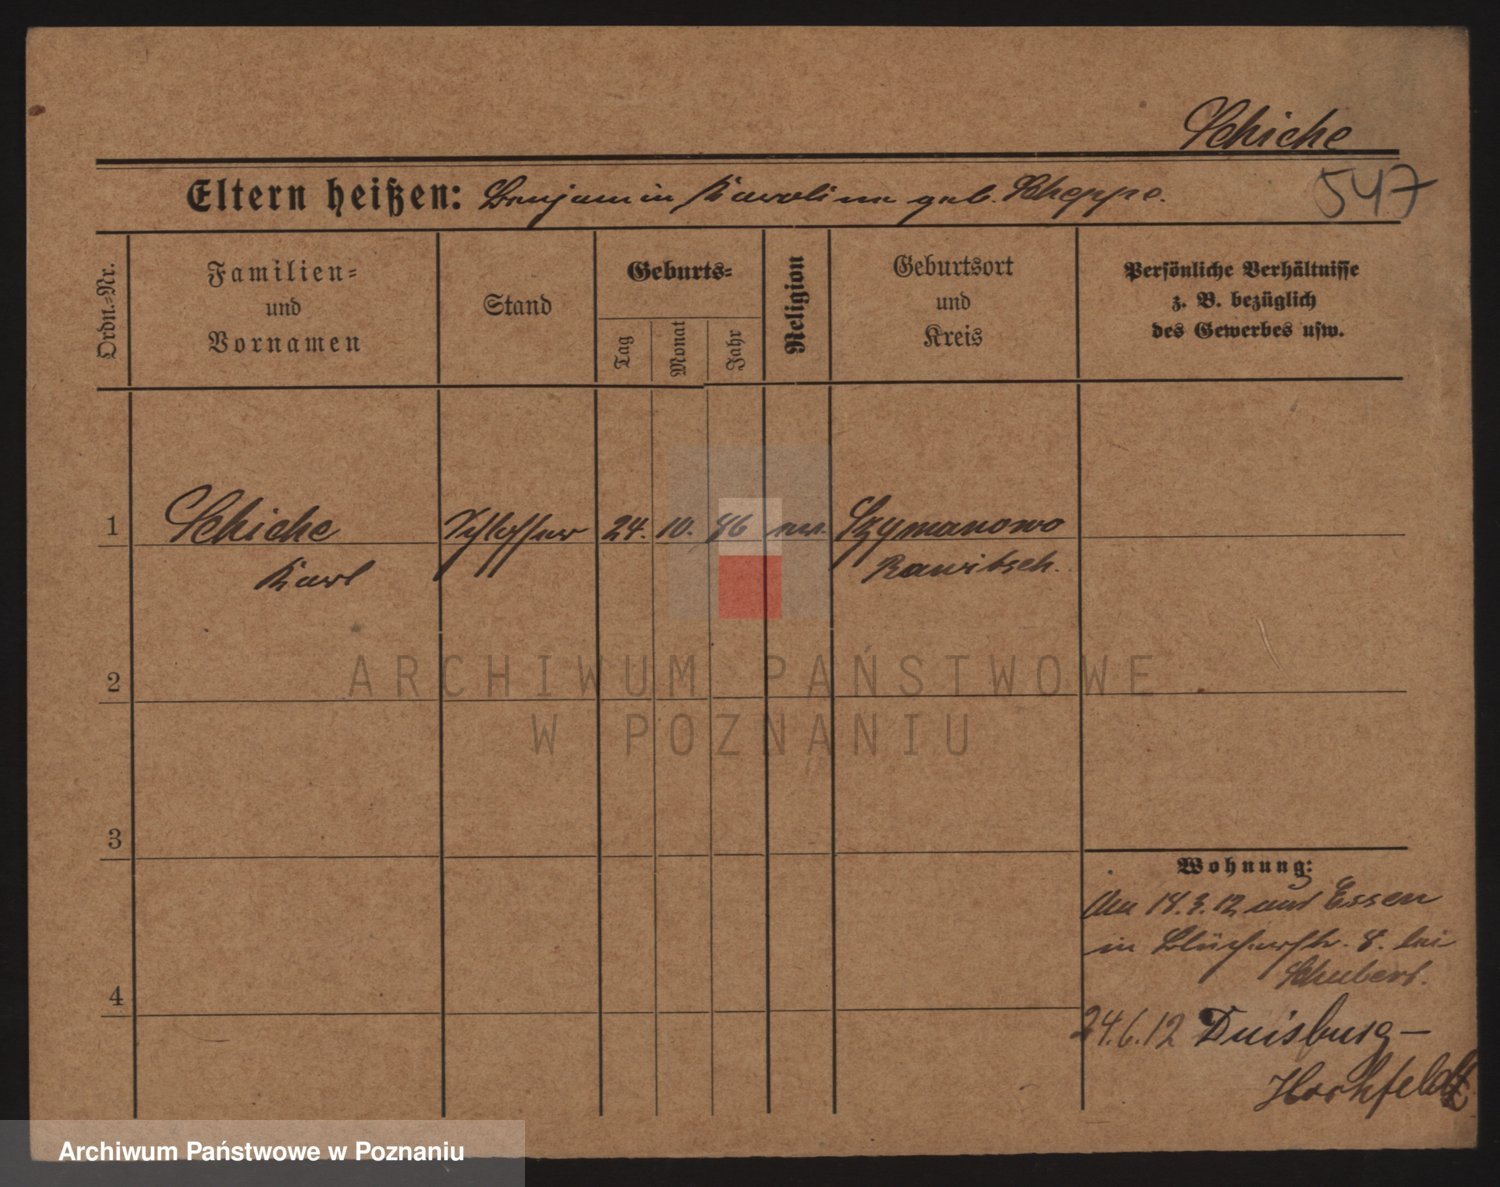 Schiche
Eltern heißen: Benjamin Karoline geb. Scheppe.
547
Ordn.-Nr.
Familien-
und
Vornamen
Stand
Geburts-
Tag
Monat
Jahr
Religion
Geburtsort
und
Kreis
Persönliche Verhältnisse
z. B. bezüglich
des Gewerbes usw.
1 Schiche Schlosser 24. 10. 86 Szymanowo
Karl Rawitsch.
2
3
4
Wohnung:
Am 18.3.12 aus Essen
in Blücherstr. 8. bei
Schubert.
24.6.12 Duisburg-
Hochfeld
ARCHIWUM PAŃSTWOWE
W POZNANIU
Archiwum Państwowe w Poznaniu